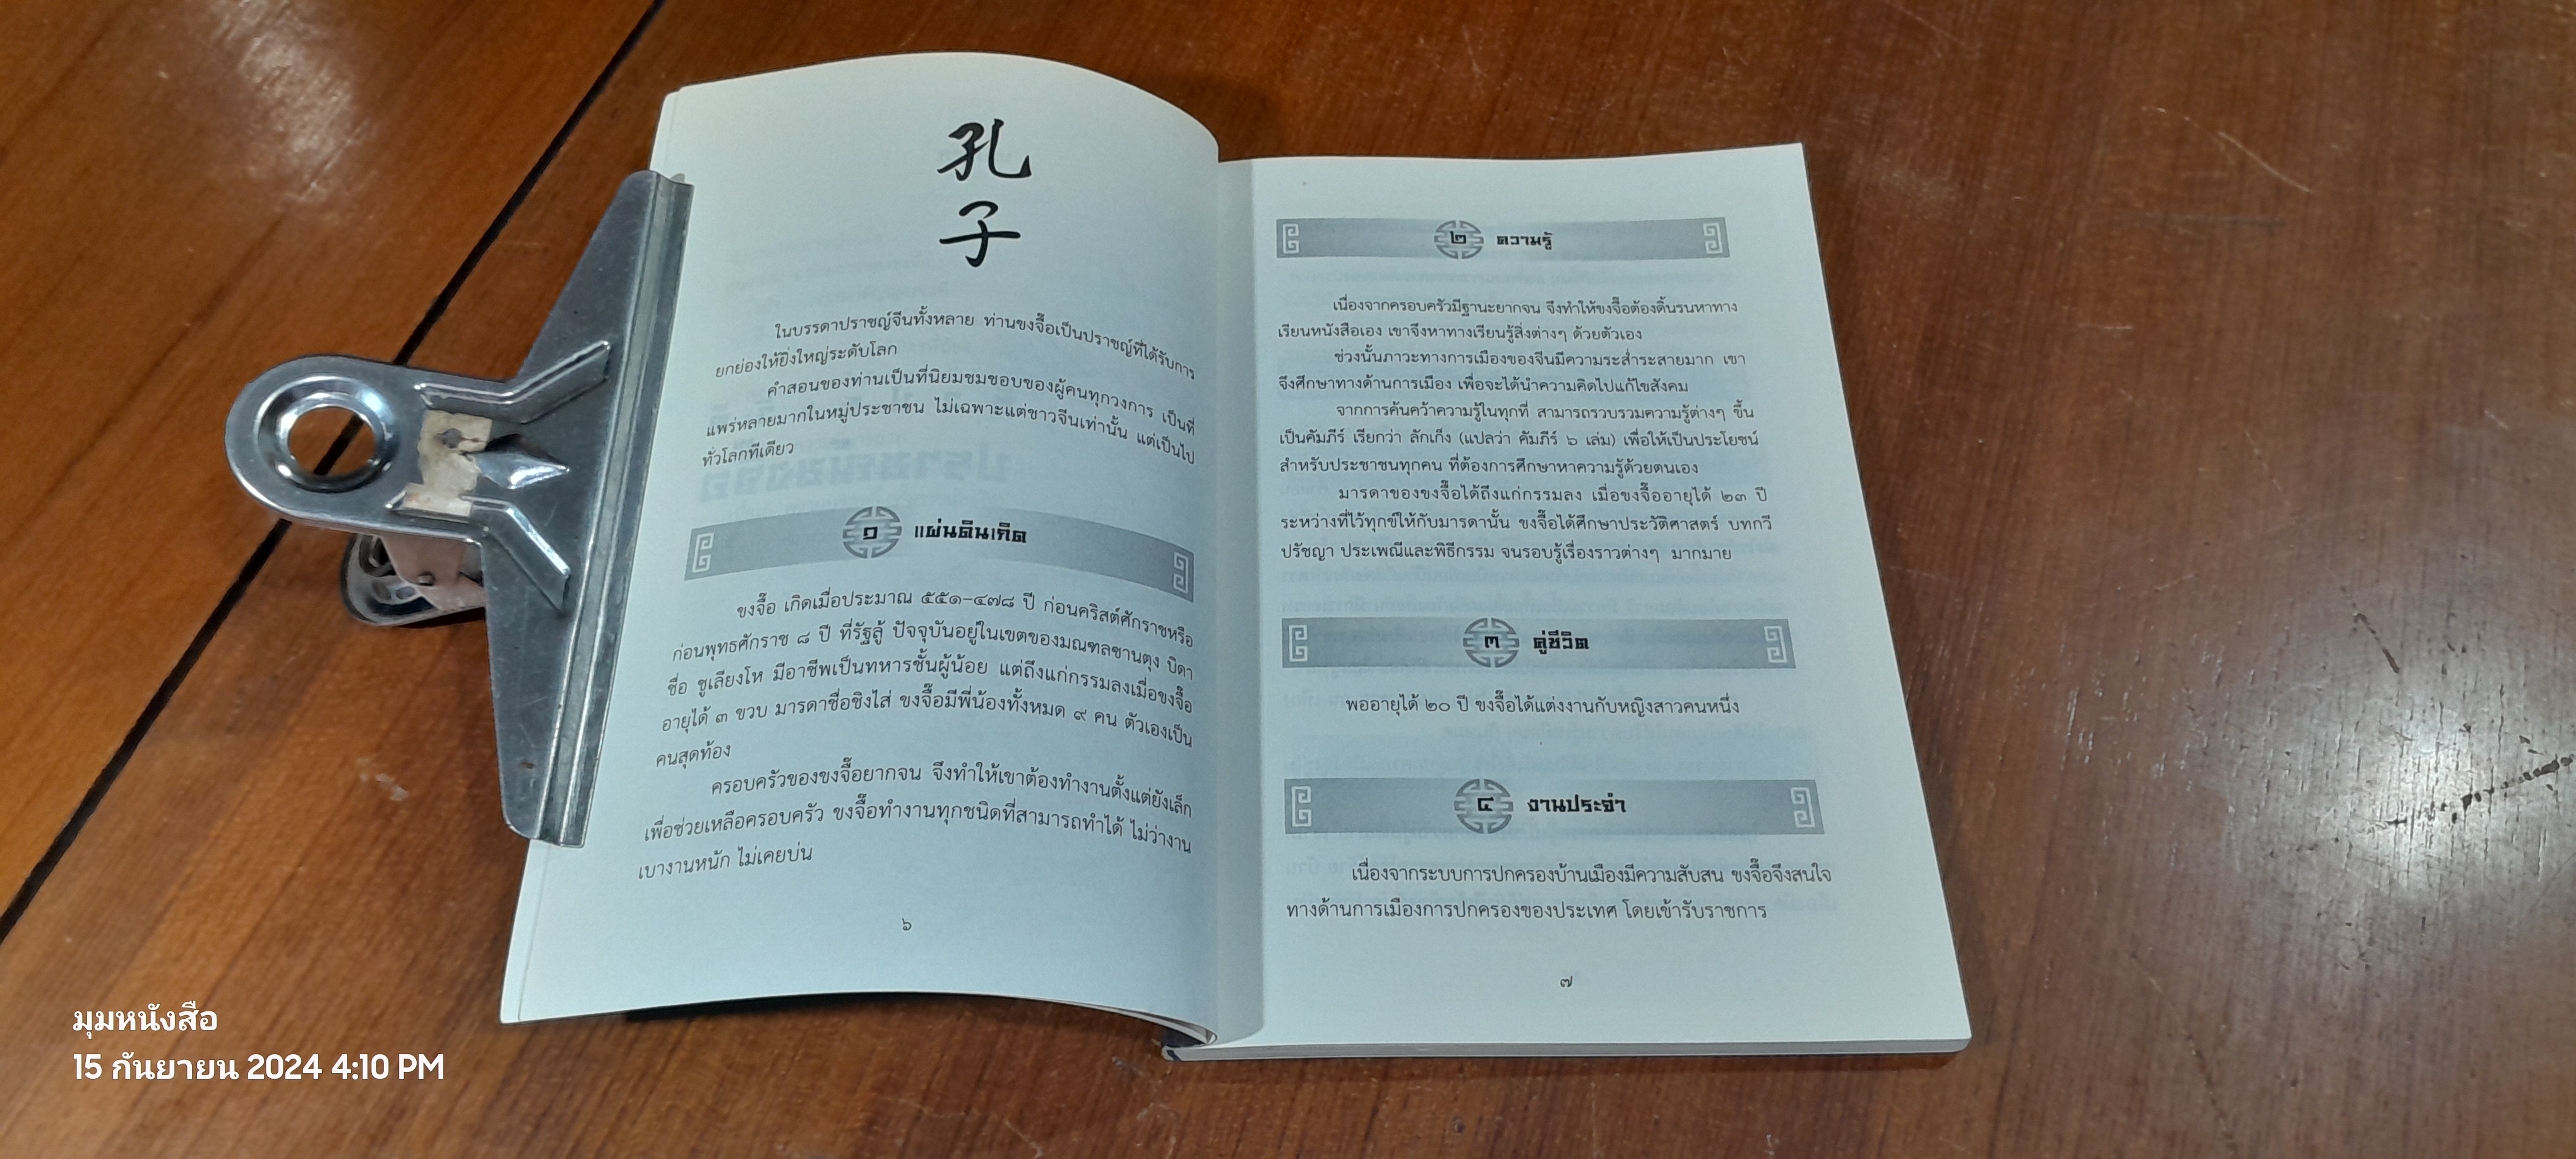 孔
子
ในบรรดาปราชญ์จีนทั้งหลาย ท่านขงจื๊อเป็นปราชญ์ที่ได้รับการ
ยกย่องให้ยิ่งใหญ่ระดับโลก
คำสอนของท่านเป็นที่นิยมชมชอบของผู้คนทุกวงการ เป็นที่
แพร่หลายมากในหมู่ประชาชน ไม่เฉพาะแต่ชาวจีนเท่านั้น แต่เป็นไป
ทั่วโลกทีเดียว
๑ แผ่นดินเกิด
ขงจื๊อ เกิดเมื่อประมาณ ๕๕๑-๔๗๘ ปี ก่อนคริสต์ศักราชหรือ
ก่อนพุทธศักราช ๘ ปี ที่รัฐลู้ ปัจจุบันอยู่ในเขตของมณฑลซานตุง บิดา
ชื่อ ซูเลียงโห มีอาชีพเป็นทหารชั้นผู้น้อย แต่ถึงแก่กรรมลงเมื่อขงจื๊อ
อายุได้ ๓ ขวบ มารดาชื่อชิงไส่ ขงจื๊อมีพี่น้องทั้งหมด ๙ คน ตัวเองเป็น
คนสุดท้อง
ครอบครัวของขงจื๊อยากจน จึงทำให้เขาต้องทำงานตั้งแต่ยังเล็ก
เพื่อช่วยเหลือครอบครัว ขงจื๊อทำงานทุกชนิดที่สามารถทำได้ ไม่ว่างาน
เบางานหนัก ไม่เคยบ่น
๖
๒ ความรู้
เนื่องจากครอบครัวมีฐานะยากจน จึงทำให้ขงจื๊อต้องดิ้นรนหาทาง
เรียนหนังสือเอง เขาจึงหาทางเรียนรู้สิ่งต่างๆ ด้วยตัวเอง
ช่วงนั้นภาวะทางการเมืองของจีนมีความระส่ำระสายมาก เขา
จึงศึกษาทางด้านการเมือง เพื่อจะได้นำความคิดไปแก้ไขสังคม
จากการค้นคว้าความรู้ในทุกที่ สามารถรวบรวมความรู้ต่างๆ ขึ้น
เป็นคัมภีร์ เรียกว่า ลักเก็ง (แปลว่า คัมภีร์ ๖ เล่ม) เพื่อให้เป็นประโยชน์
สำหรับประชาชนทุกคน ที่ต้องการศึกษาหาความรู้ด้วยตนเอง
มารดาของขงจื๊อได้ถึงแก่กรรมลง เมื่อขงจื๊ออายุได้ ๒๓ ปี
ระหว่างที่ไว้ทุกข์ให้กับมารดานั้น ขงจื๊อได้ศึกษาประวัติศาสตร์ บทกวี
ปรัชญา ประเพณีและพิธีกรรม จนรอบรู้เรื่องราวต่างๆ มากมาย
๓ คู่ชีวิต
พออายุได้ ๒๐ ปี ขงจื๊อได้แต่งงานกับหญิงสาวคนหนึ่ง
๔ งานประจำ
เนื่องจากระบบการปกครองบ้านเมืองมีความสับสน ขงจื๊อจึงสนใจ
ทางด้านการเมืองการปกครองของประเทศ โดยเข้ารับราชการ
๗
มุมหนังสือ
15 กันยายน 2024 4:10 PM